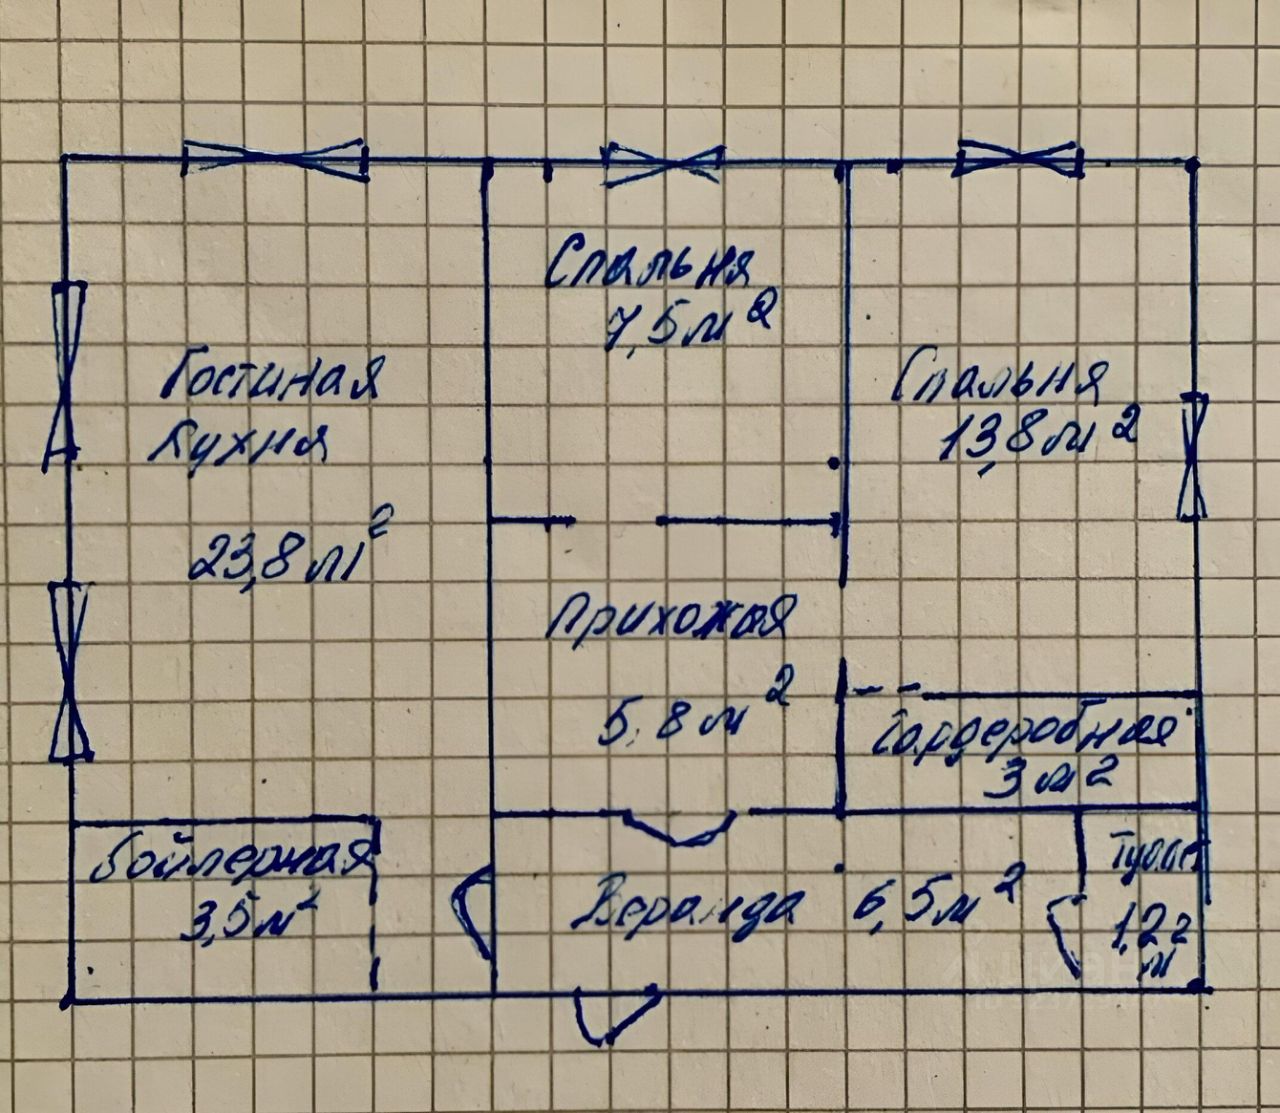 Спальня
7,5м²
Гостиная
Кухня
23,8м²
Спальня
13,8м²
Прихожая
5,8м²
Гардеробная
3м²
Бойлерная
3,5м²
Веранда 6,5м²
Туалет
1,2 2
м